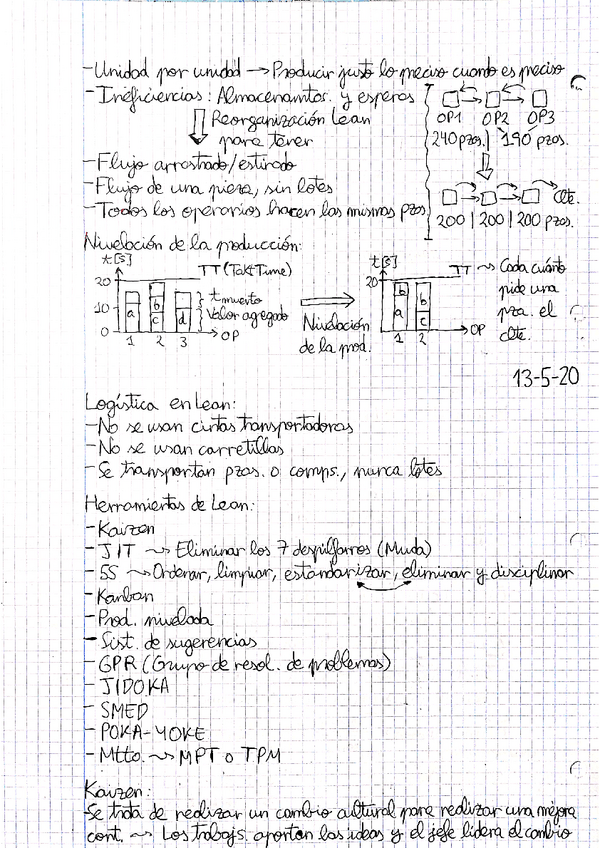 -Unidad por unidad → Producir justo lo preciso cuando es preciso
-Ineficiencias: Almacenamtos. y esperas
Reorganización Lean
para tener
-Flujo arrastrado/estirado
-Flujo de una pieza, sin lotes
-Todos los operarios hacen las mismas pzas.
OP1 OP2 OP3
240pzas. | 190 pzas.
clte.
200 | 200 | 200 pzas.
Nivelación de la producción:
t[s]
TT (Takt Time)
20
10
0
a
b
c
d
t muerto
Valor agregado
1 2 3
OP
Nivelación
de la prod.
t[s]
20
TT ~> Cada cuánto
pide una
pza. el
clte.
b
a
b
c
1 2
OP
13-5-20
Logística en Lean:
-No se usan cintas transportadoras
-No se usan carretillas
-Se transportan pzas. o comps., nunca lotes
Herramientas de Lean:
-Kaizen
-JIT ~> Eliminar los 7 despilfarros (Muda)
-5S ~> Ordenar, limpiar, estandarizar, eliminar y disciplinar
-Kanban
-Prod. nivelada
-Sist. de sugerencias
-GPR (Grupo de resol. de problemas)
-JIDOKA
-SMED
-POKA-YOKE
-Mtto. ~> MPT o TPM
Kaizen:
-Se trata de realizar un cambio cultural para realizar una mejora
cont. ~> Los trabajs. aportan las ideas y el jefe lidera el cambio